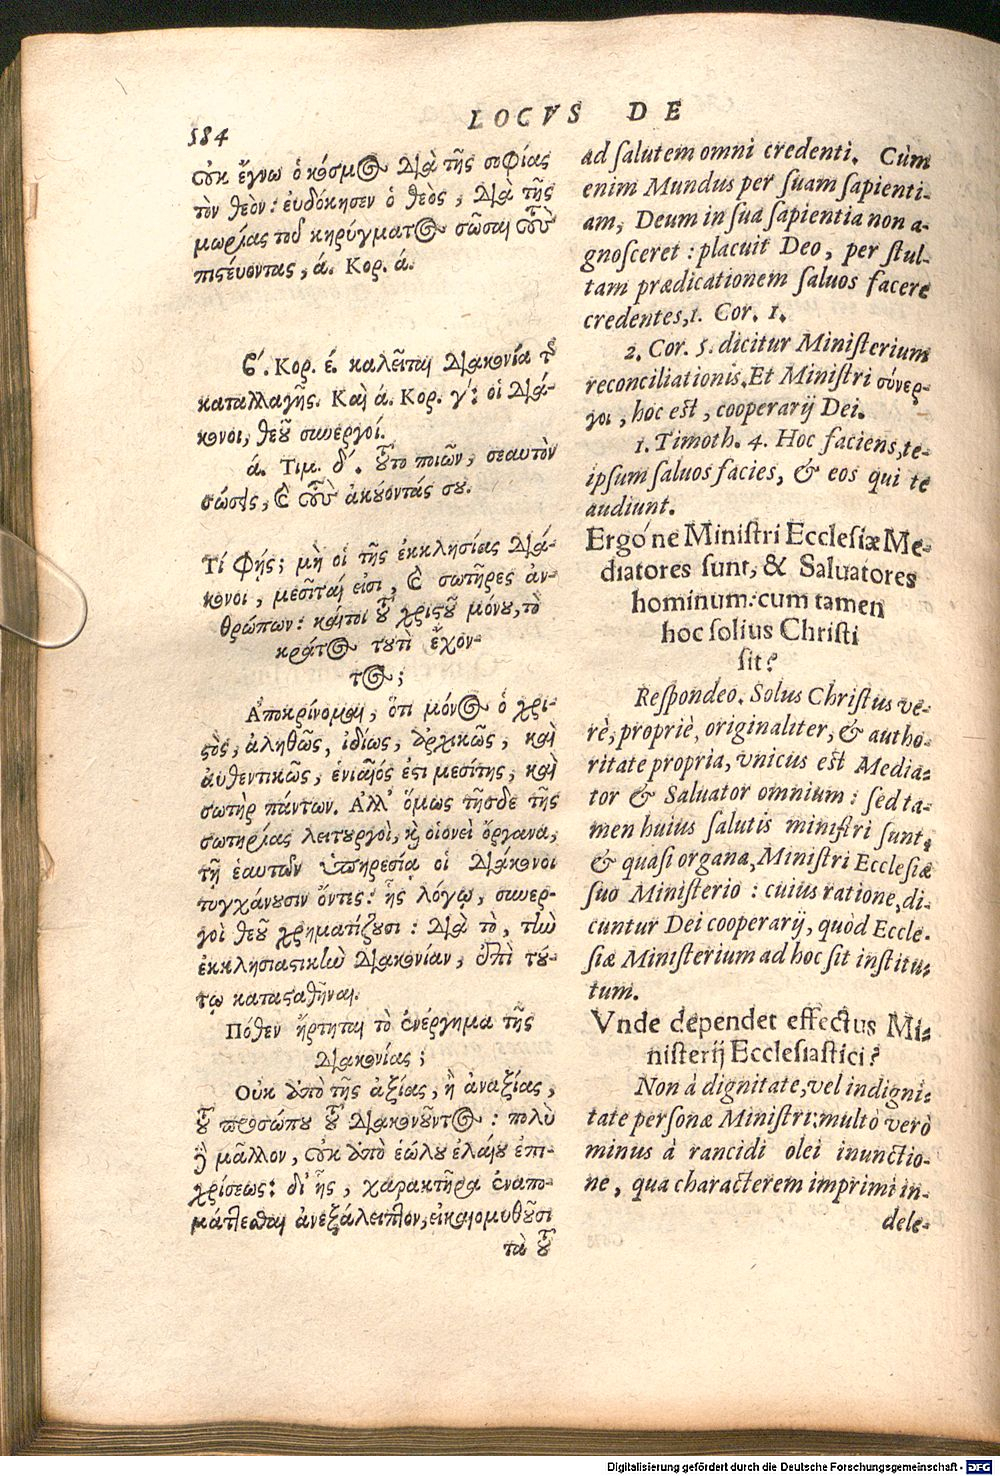 LOCVS DE
584
οὐκ ἔγνω ὁ κόσμος διὰ τῆς σοφίας
τὸν θεὸν: εὐδόκησεν ὁ θεὸς, διὰ τῆς
μωρίας τοῦ κηρύγματος σῶσαι τοὺς
πιστεύοντας, ά. Κορ. ά.
ϛ΄. Κορ. έ. καλεῖται διακονία τῆς
καταλλαγῆς. Καὶ ά. Κορ. γ΄: οἱ διά-
κονοι, θεοῦ συνεργοί.
ά. Τιμ. δ΄. τοῦτο ποιῶν, σεαυτὸν
σώσεις, καὶ τοὺς ἀκούοντάς σου.
Τί φῄς; μὴ οἱ τῆς ἐκκλησίας διά-
κονοι, μεσῖταί εἰσι, καὶ σωτῆρες ἀν-
θρώπων: καίτοι τοῦ χριστοῦ μόνου, τὸ
κράτος τουτὶ ἔχον-
τος;
Ἀποκρίνομαι, ὅτι μόνος ὁ χρι-
στὸς, ἀληθῶς, ἰδίως, ἀρχικῶς, καὶ
αὐθεντικῶς, ἑνιαῖός ἐστι μεσίτης, καὶ
σωτὴρ πάντων. Ἀλλ' ὅμως τῆσδε τῆς
σωτηρίας λειτουργοὶ, καὶ οἱονεὶ ὄργανα,
τῇ ἑαυτῶν ὑπηρεσίᾳ οἱ διάκονοι
τυγχάνουσιν ὄντες: ἧς λόγῳ, συνερ-
γοὶ θεοῦ χρηματίζουσι: διὰ τὸ, τὴν
ἐκκλησιαστικὴν διακονίαν, ἐπὶ τού-
τῳ κατασταθῆναι.
Πόθεν ἤρτηται τὸ ἐνέργημα τῆς
διακονίας;
Οὐκ ἀπὸ τῆς ἀξίας, ἢ ἀναξίας,
τοῦ προσώπου τοῦ διακονοῦντος: πολὺ
δὲ μᾶλλον, οὐκ ἀπὸ ἑώλου ἐλαίου ἐπι-
χρίσεως: δι' ἧς, χαρακτῆρα ἐναπο-
μάττεσθαι ἀνεξάλειπτον, εἰκαιομυθοῦσι
τὰ τοῦ
ad salutem omni credenti. Cùm
enim Mundus per suam sapienti-
am, Deum in sua sapientia non a-
gnosceret: placuit Deo, per stul-
tam prædicationem saluos facere
credentes, 1. Cor. 1.
2. Cor. 5. dicitur Ministerium
reconciliationis. Et Ministri σύνερ-
γοι, hoc est, cooperarij Dei.
1. Timoth. 4. Hoc faciens, te-
ipsum saluos facies, & eos qui te
audiunt.
Ergó ne Ministri Ecclesiæ Me-
diatores sunt, & Saluatores
hominum: cum tamen
hoc solius Christi
sit?
Respondeo. Solus Christus ve-
rè, propriè, originaliter, & autho-
ritate propria, vnicus est Media-
tor & Saluator omnium: sed ta-
men huius salutis ministri sunt,
& quasi organa, Ministri Ecclesiæ
suo Ministerio: cuius ratione, di-
cuntur Dei cooperarij, quòd Eccle-
siæ Ministerium ad hoc sit institu-
tum.
Vnde dependet effectus Mi-
nisterij Ecclesiastici?
Non à dignitate, vel indigni-
tate personæ Ministri: multò verò
minus à rancidi olei inunctio-
ne, qua characterem imprimi in-
dele-
Digitalisierung gefördert durch die Deutsche Forschungsgemeinschaft - DFG